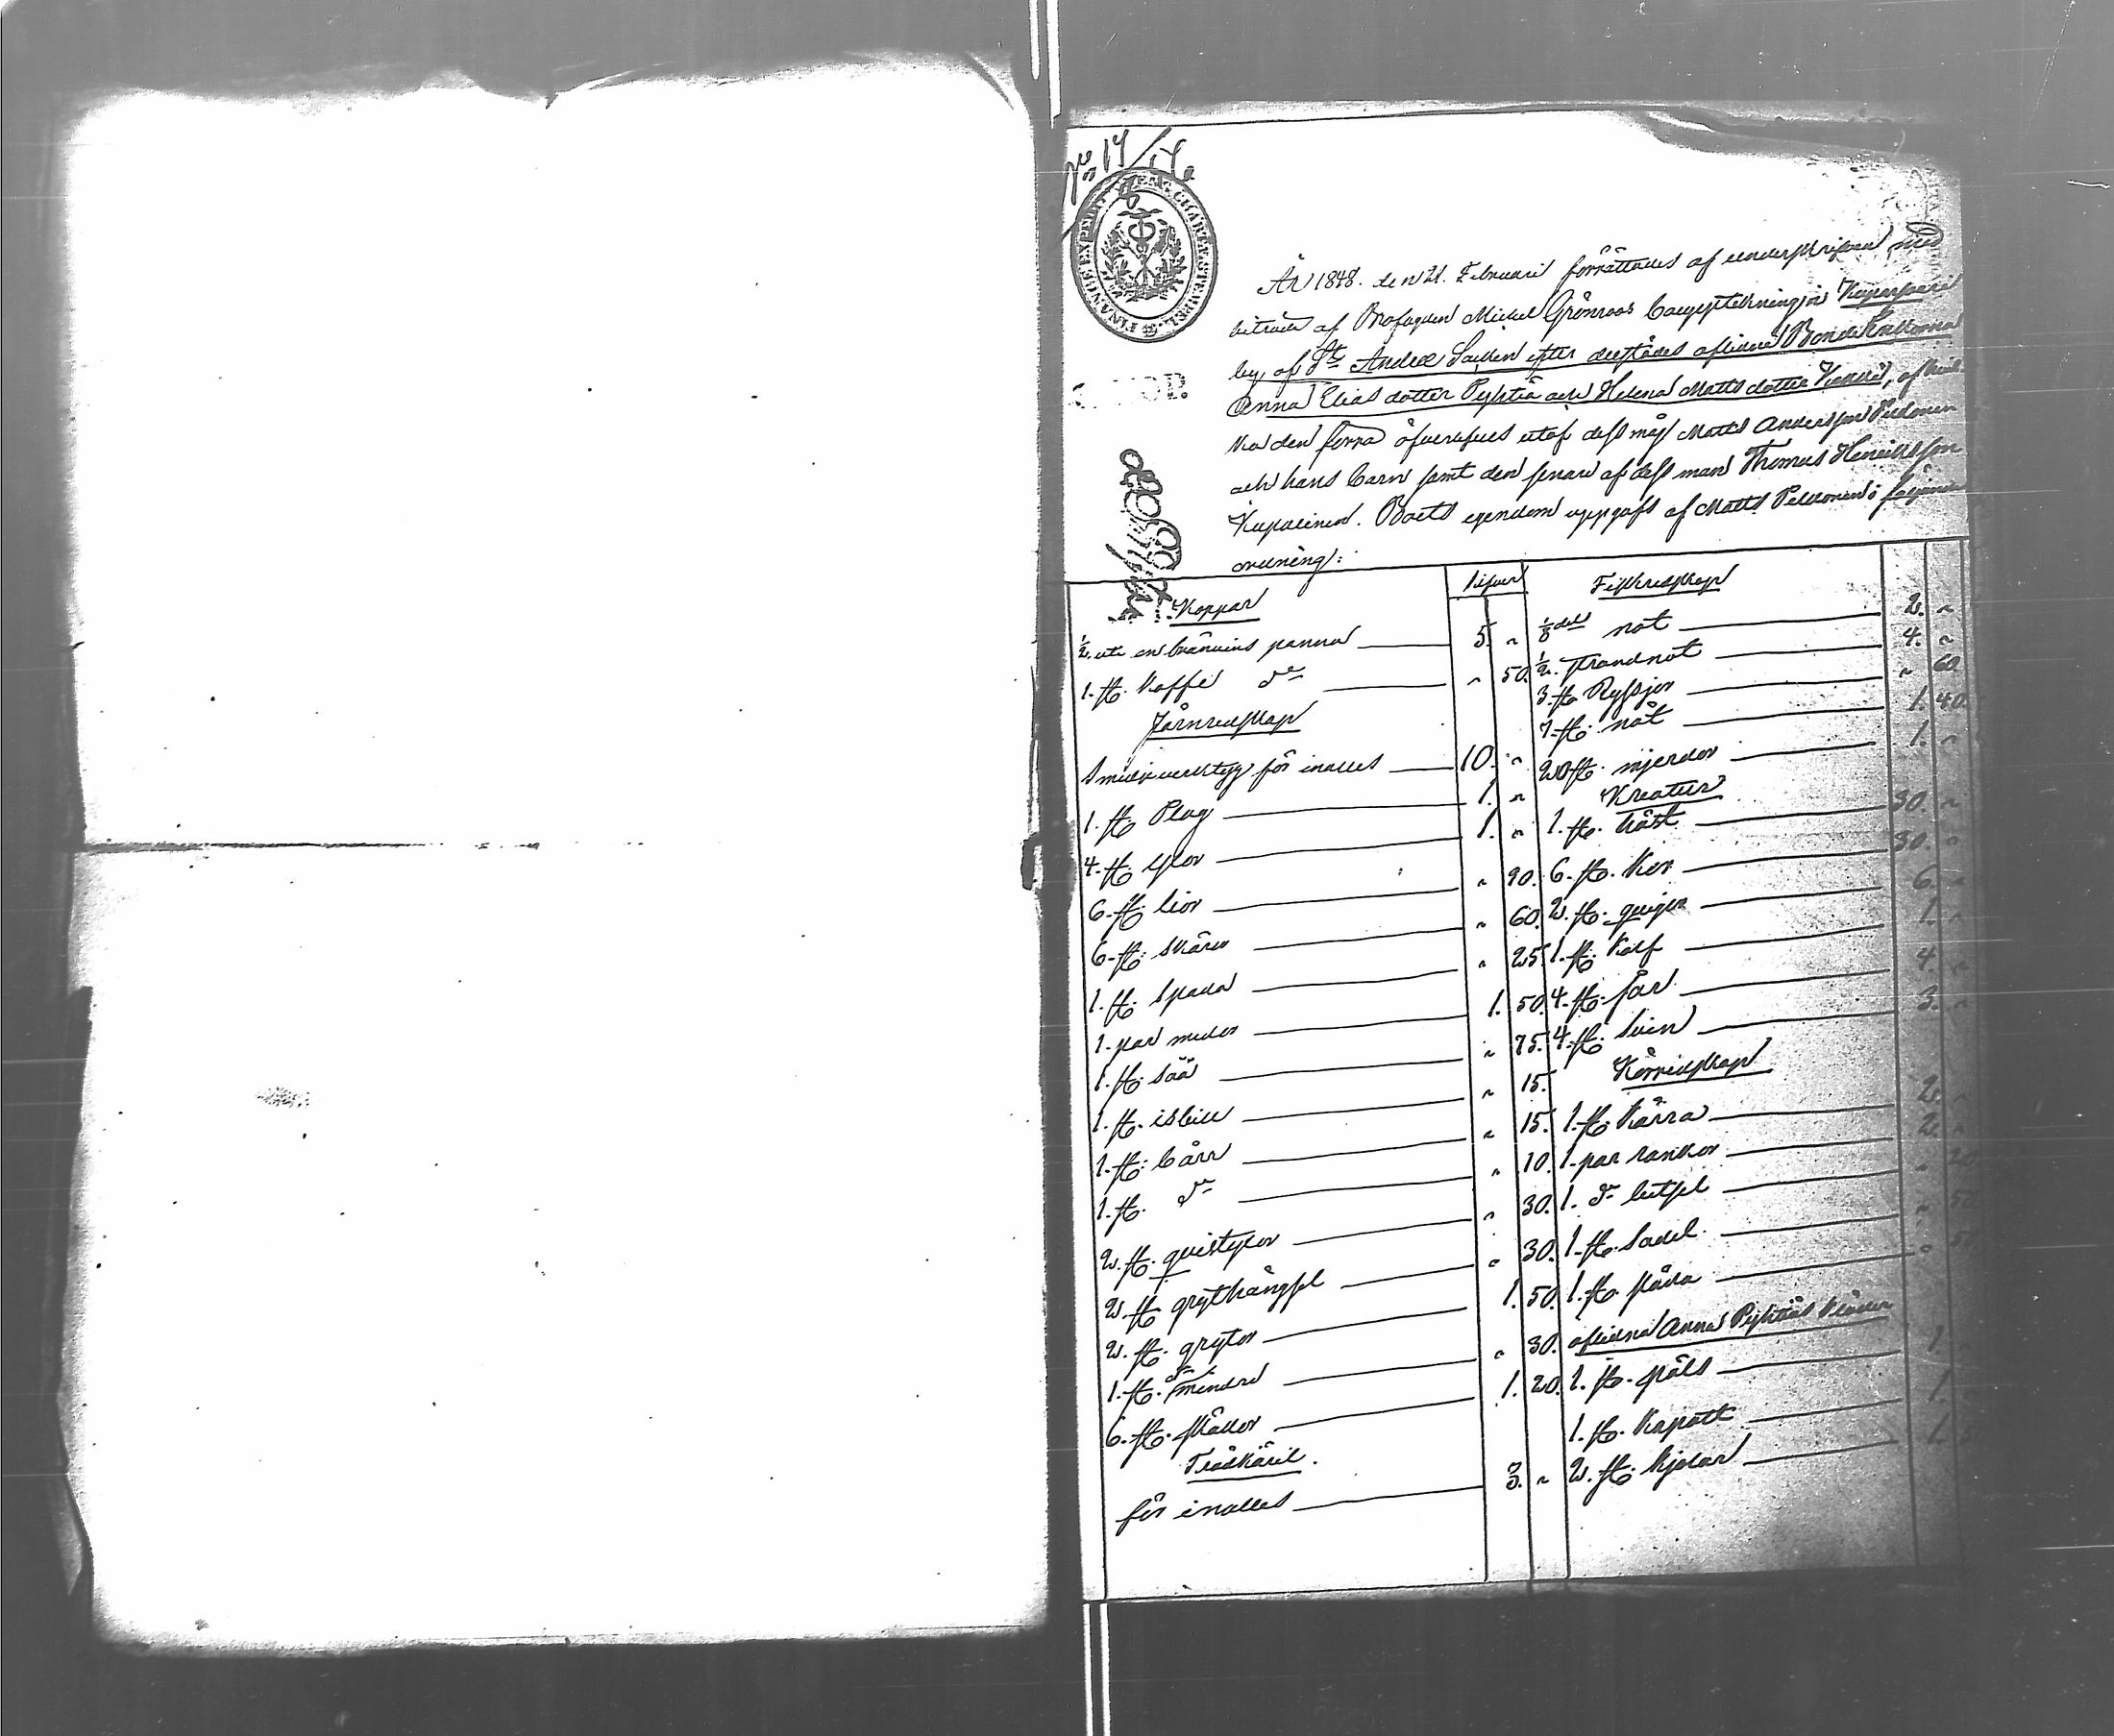 No 17/
FINANCE EXPEDIT CHARTÆ STEMPEL
År 1848. den 21. Februarii förrättades af underskrifven med
biträde af Brofogden Michel Grönroos bouppteckning i
by af St. Andræ Socken efter derstädes aflidne Bonde Enkorna
Anna Eliasdotter Pyhtiä och Helena Mattsdotter, af hvil-
ka den förra öfverlefves utaf dess måg Matts Andersson Pelkonen
och hans barn samt den senare af dess man Thomas Henriksson
Kupalinen. Boets egendom uppgafs af Matts Pelkonen i följande
ordning:
Koppar Silfver
1/2. uti en bränvins panna 5. "
1. st. Kaffe do " 50.
Järnredskap
Smidesverktyg för inalles 10. "
1. st. Plog 1. "
4. st. yxor 1. "
6. st. liar " 90.
6. st. skäror " 60.
1. st. Spada " 25.
1. par medor 1. 50.
1. st. såå " 75.
1. st. isbill " 15.
1. st. bårr " 15.
1. st. do " 10.
2. st. quistyxor " 30.
2. st. grythängsel " 30.
2. st. grytor 1. 50.
1. st. do mindre " 30.
6. st. skållor 1. 20.
Trädkäril.
för inalles 3. "
Fiskredskap
1/8 del not 2. "
1/2. strandnot 4. "
3. st. Ryssjor " 60
7. st. nät 1. 40.
20 st. mjerdor 1. "
Kreatur
1. st. häst 30. "
6. st. Kor 30. "
2. st. quigor 6. "
1. st. Kalf 1. "
4. st. får 4. "
4. st. Svin 3. "
Körredskap
1. st. Kärra 2. "
1. par rankor 2. "
1. do betsel " 20
1. st. Sadel " 50
1. st. släda " 50
aflidna Anna Pyhtiäs kläder
1. st. päls 1.
1. st. Kapott 1.
2. st. kjolar 1.